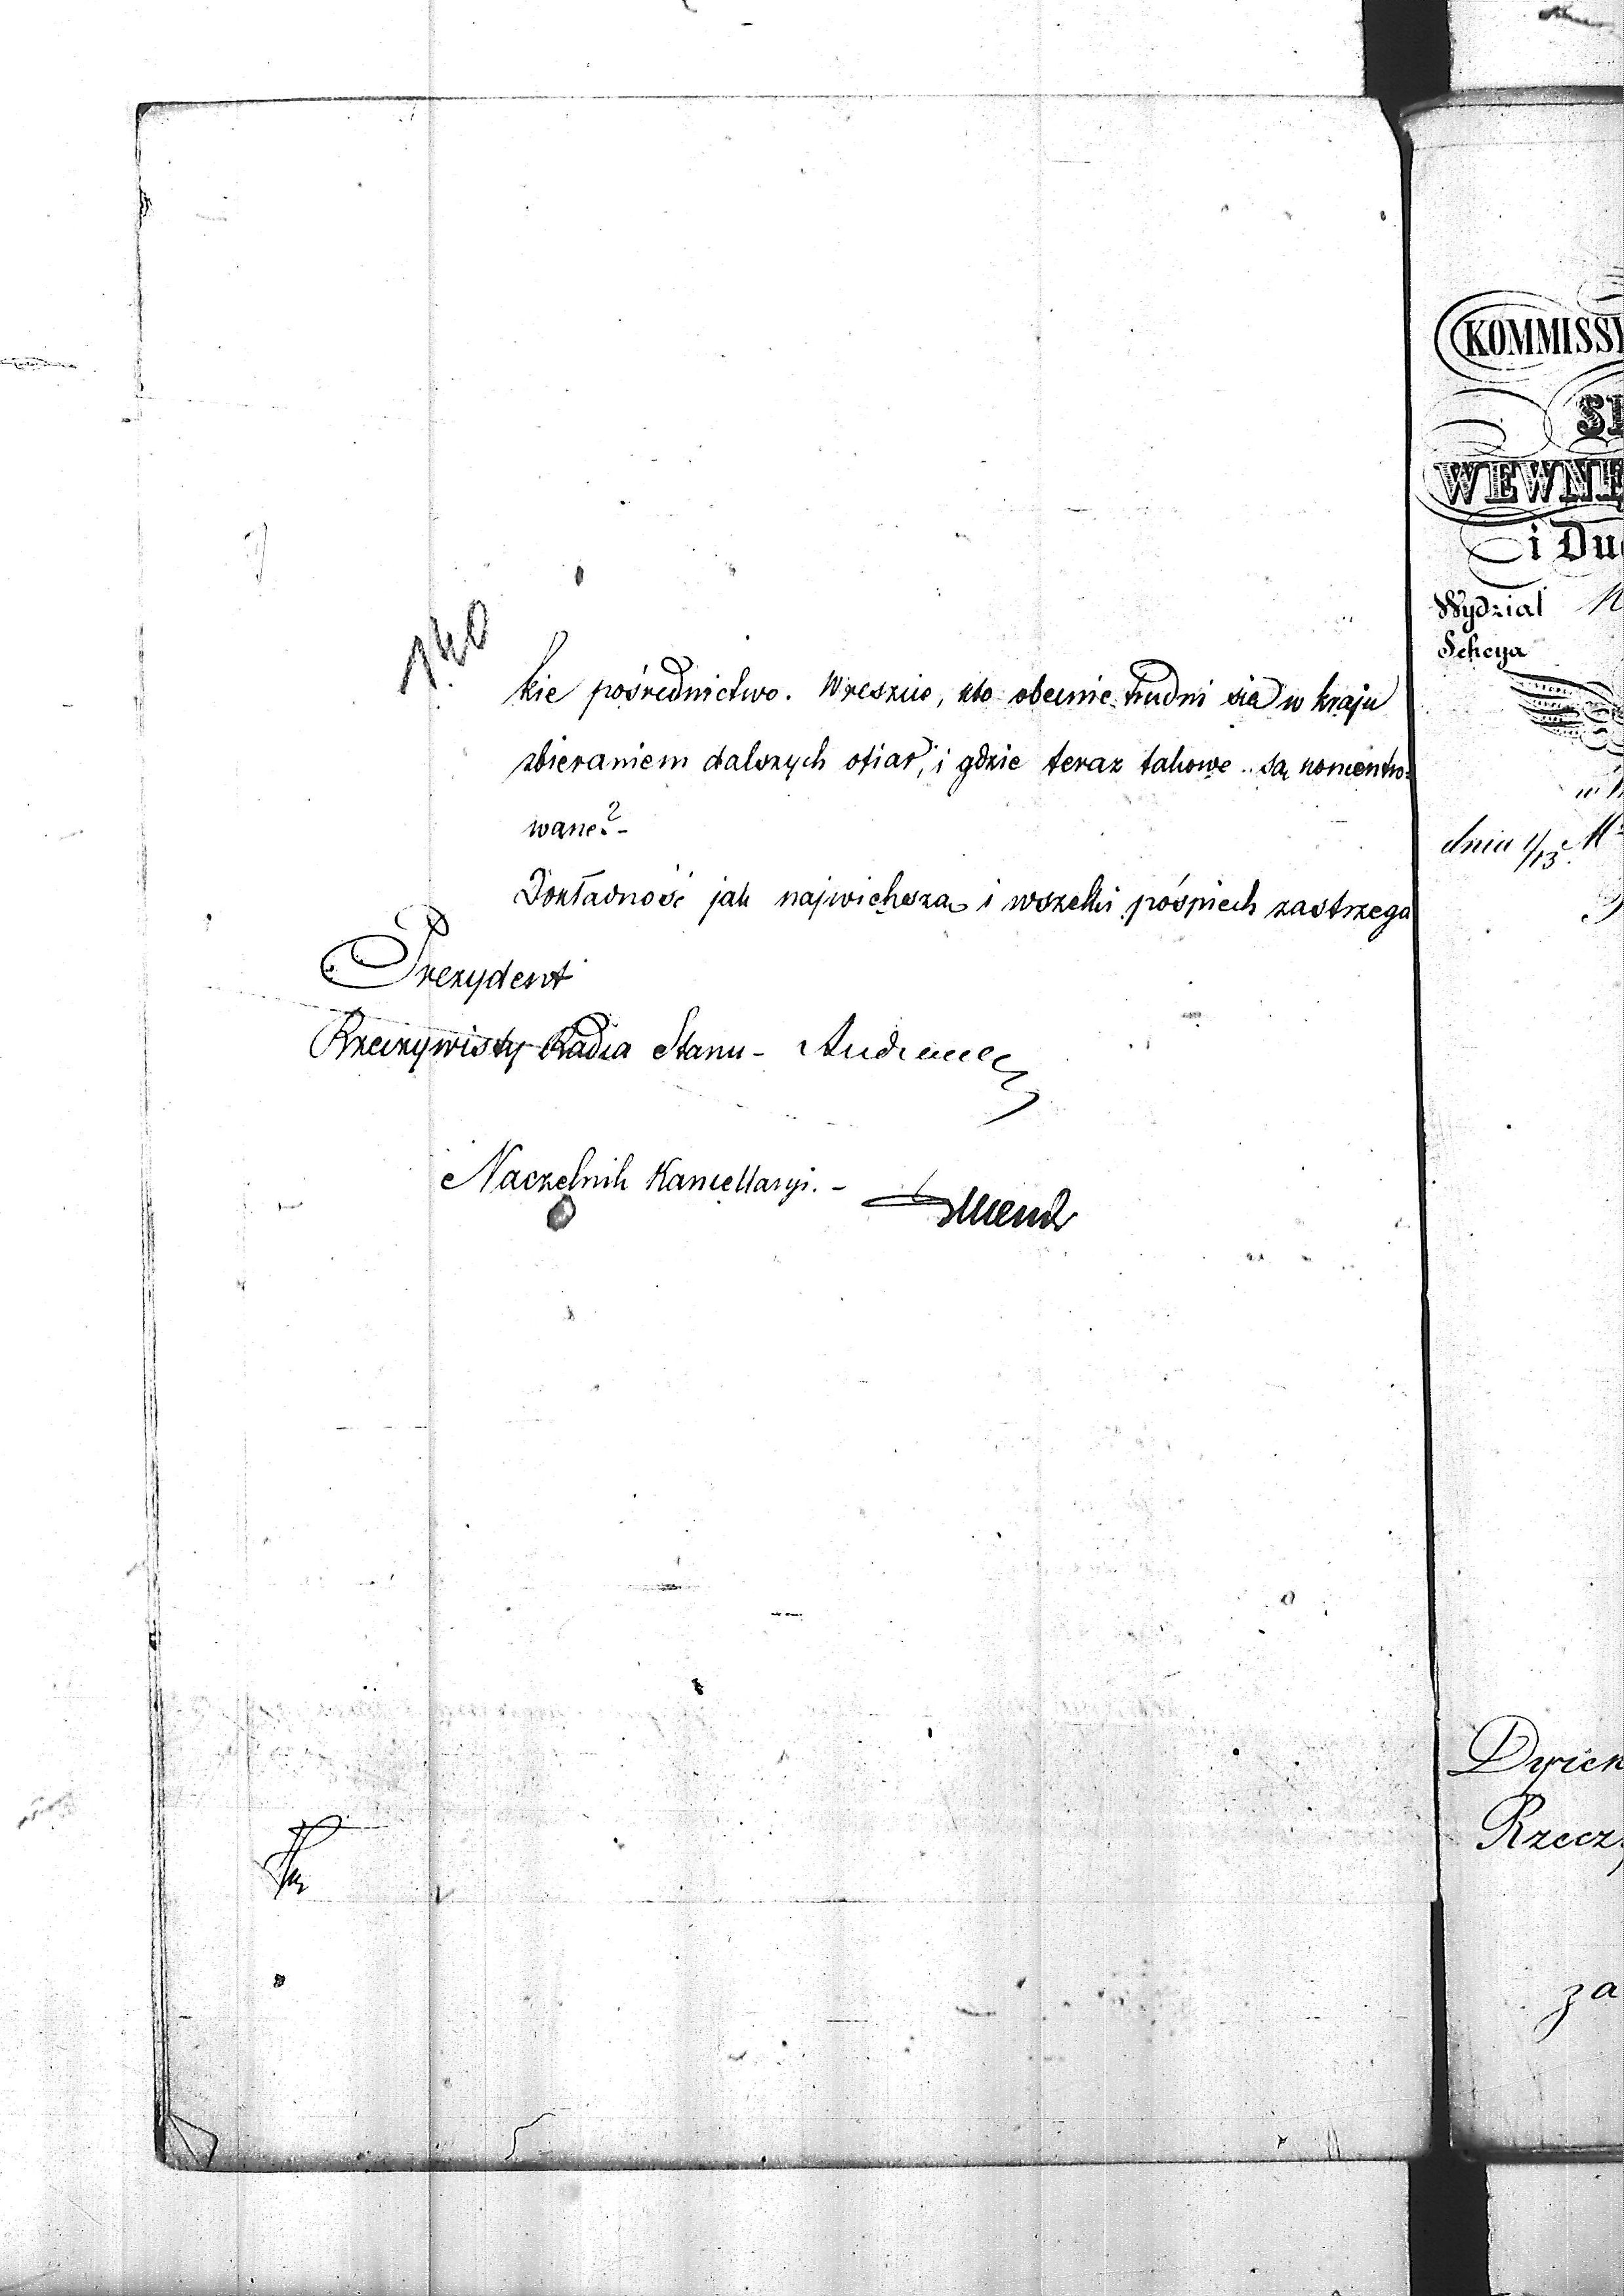 140
kie pośrednictwo. Wreszcie, kto obecnie trudni się w kraju
zbieraniem dalszych ofiar, i gdzie teraz takowe są koncentro=
wane?-
Dokładność jak największa i wszelki pośpiech zastrzega
Prezydent
Rzeczywisty Radca Stanu - Andrault
Naczelnik Kancellaryi. -
KOMMISSY
SP
WEWNĘ
i Duc
Wydział
Sekcya
dnia 1/13 M
Dyrek
Rzeczy
za